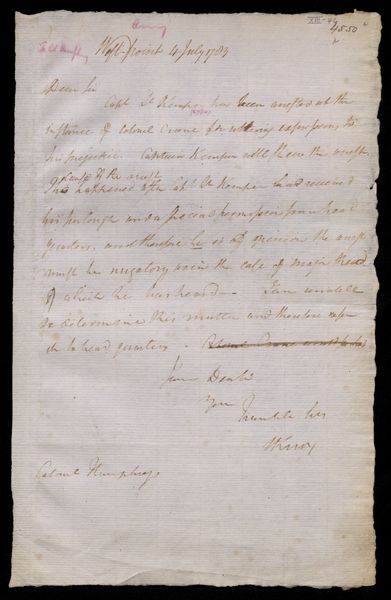 Army
XIII-44
4550
To Col Humphry
West-point 4 July 1783
Dear Sir
Capt Lt Kemper has been arrested at the
instance of Colonel Crane for uttering expressions to
his prejudice. Captain Kemper will shew the arrest.
cause of the arrest
This happened after Capt Lt Kemper had received
his furlough and a special permission from head
quarters, and therefore he is of opinion the arrest
must be nugatory as in the case of Major Reed
of which he has heard — I am unable
to determine this matter and therefore refer
it to head quarters.
I am Dear Sir
Your
humble Ser
HKnox
Colonel Humphrys